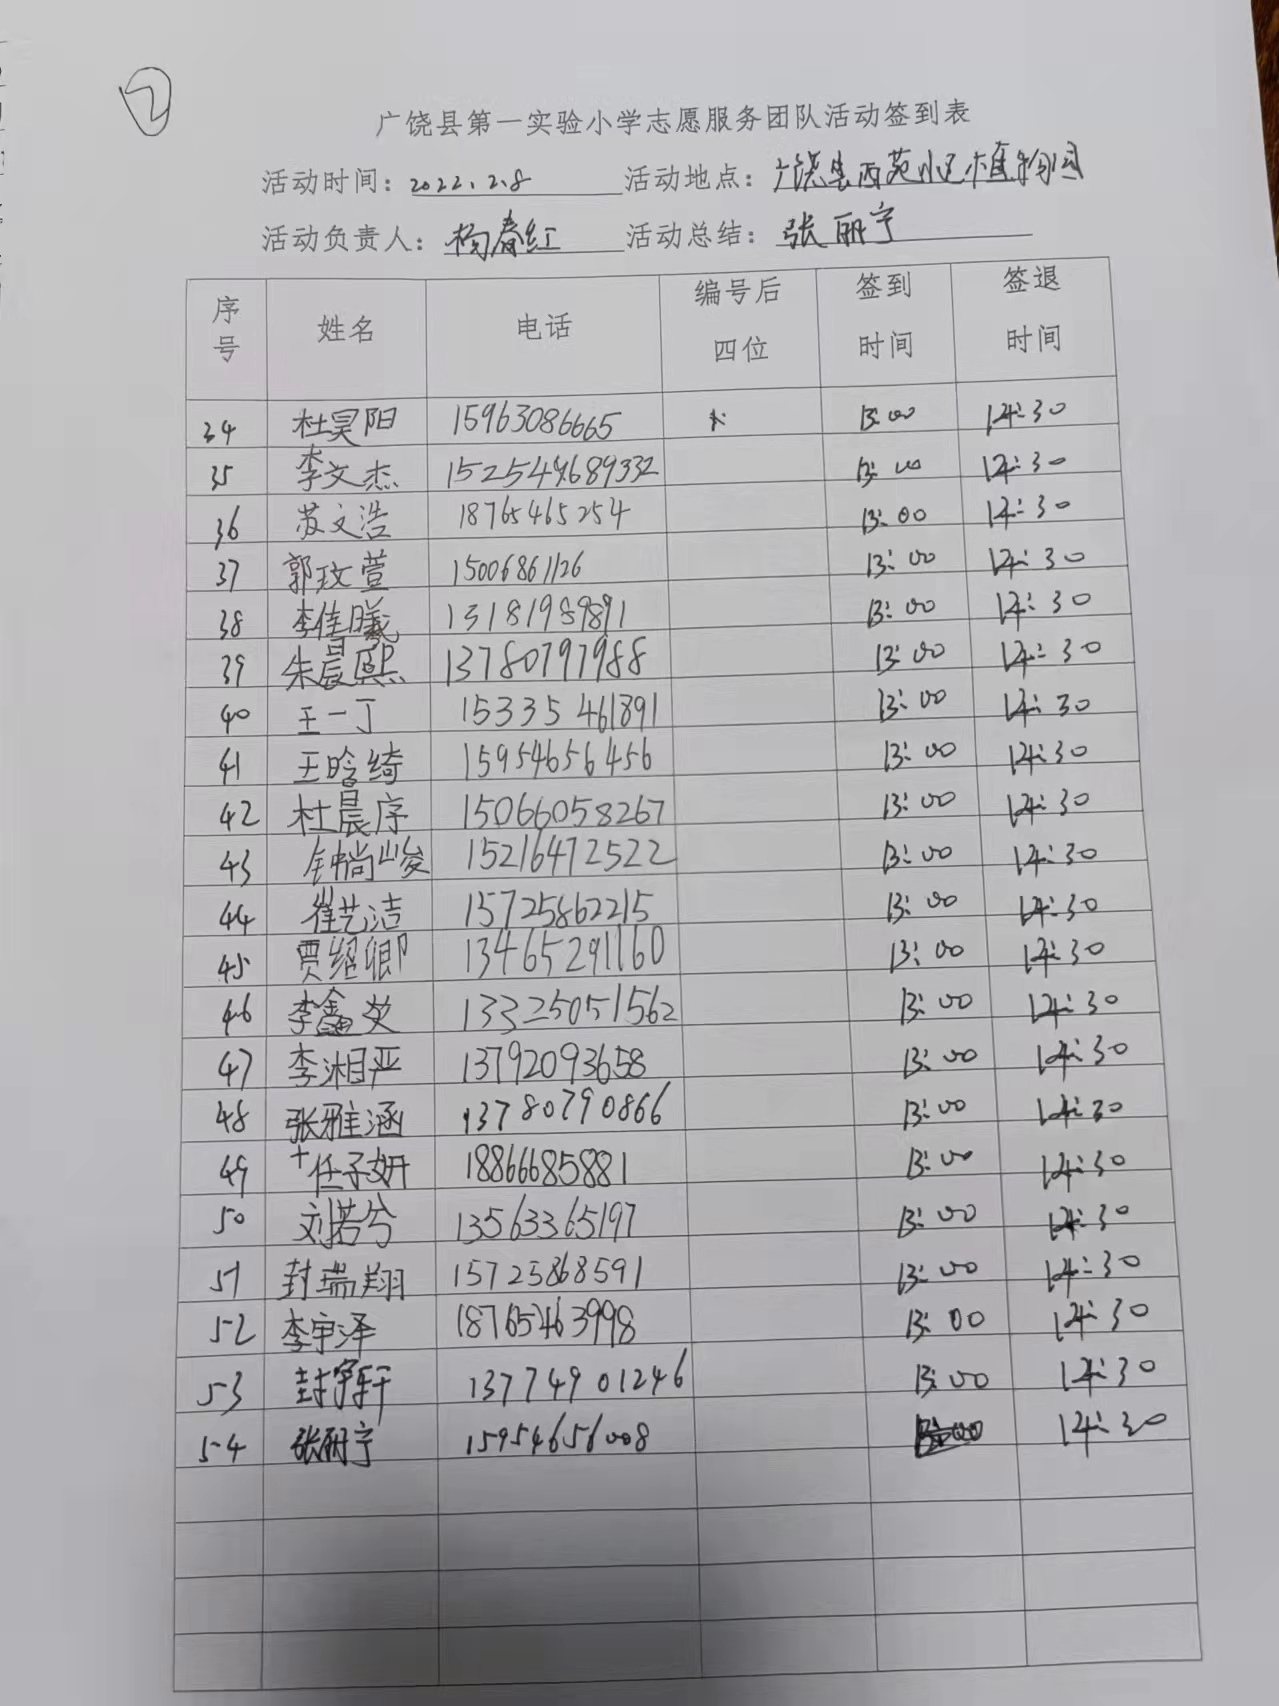 ②
广饶县第一实验小学志愿服务团队活动签到表
活动时间：2022.2.8 活动地点：广饶县西苑小区植物园
活动负责人：杨春红 活动总结：张丽宁
序号 姓名 电话 编号后四位 签到时间 签退时间
34 杜昊阳 15963086665 13:00 14:30
35 李文杰 152544689332 13:00 14:30
36 苏文浩 18765465254 13:00 14:30
37 郭玟萱 15006861126 13:00 14:30
38 李佳曦 13181989891 13:00 14:30
39 朱晨熙 13780797988 13:00 14:30
40 王一丁 15335461891 13:00 14:30
41 王晗绮 15954656456 13:00 14:30
42 杜晨序 15066058267 13:00 14:30
43 钟尚峻 15216472522 13:00 14:30
44 崔艺洁 15725862215 13:00 14:30
45 贾绍卿 13465291160 13:00 14:30
46 李鑫 13325051562 13:00 14:30
47 李湘严 13792093658 13:00 14:30
48 张雅涵 13780790866 13:00 14:30
49 任子妍 18866685881 13:00 14:30
50 刘若兮 13563365197 13:00 14:30
51 封瑞翔 15725868591 13:00 14:30
52 李宇泽 18765463998 13:00 14:30
53 封宇轩 13774901246 13:00 14:30
54 张丽宁 15954656008 13:00 14:30